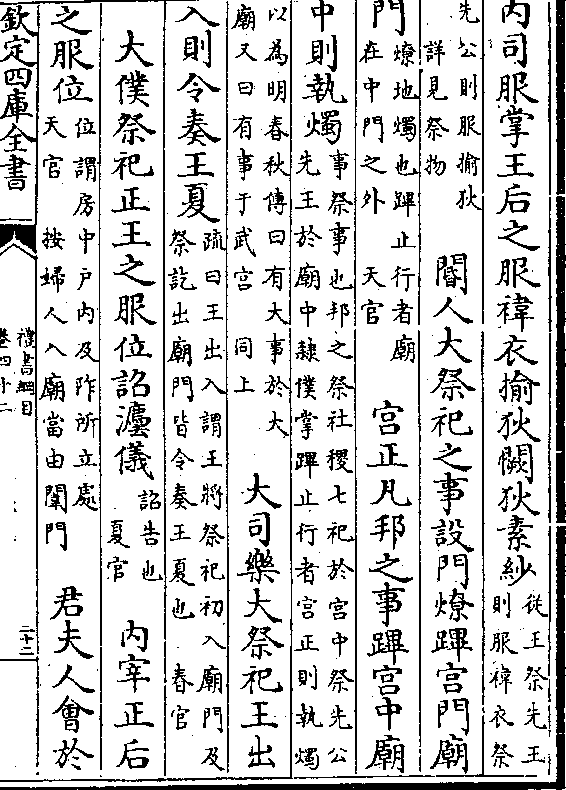 内司服掌王后之服褘衣揄狄闕狄素紗從王祭先王則服褘衣祭
先公則服揄狄詳見祭物 閽人大祭祀之事設門燎蹕宫門廟
門燎地燭也蹕止行者廟在中門之外 天官 宫正凡邦之事蹕宫中廟
中則執燭事祭事也邦之祭社稷七祀於宫中祭先公先王於廟中隸僕掌蹕止行者宫正則執燭
以為明春秋傳曰有大事於大廟又曰有事于武宫 同上 大司樂大祭祀王出
入則令奏王夏疏曰王出入謂王將祭祀初入廟門及祭訖出廟門皆令奏王夏也 春官
大僕祭祀正王之服位詔灋儀詔告也夏官 内宰正后
之服位位謂房中戶内及阼所立處天官 按婦人入廟當由闈門 君夫人會於
欽定四庫全書
禮書綱目
卷四十二
二十二